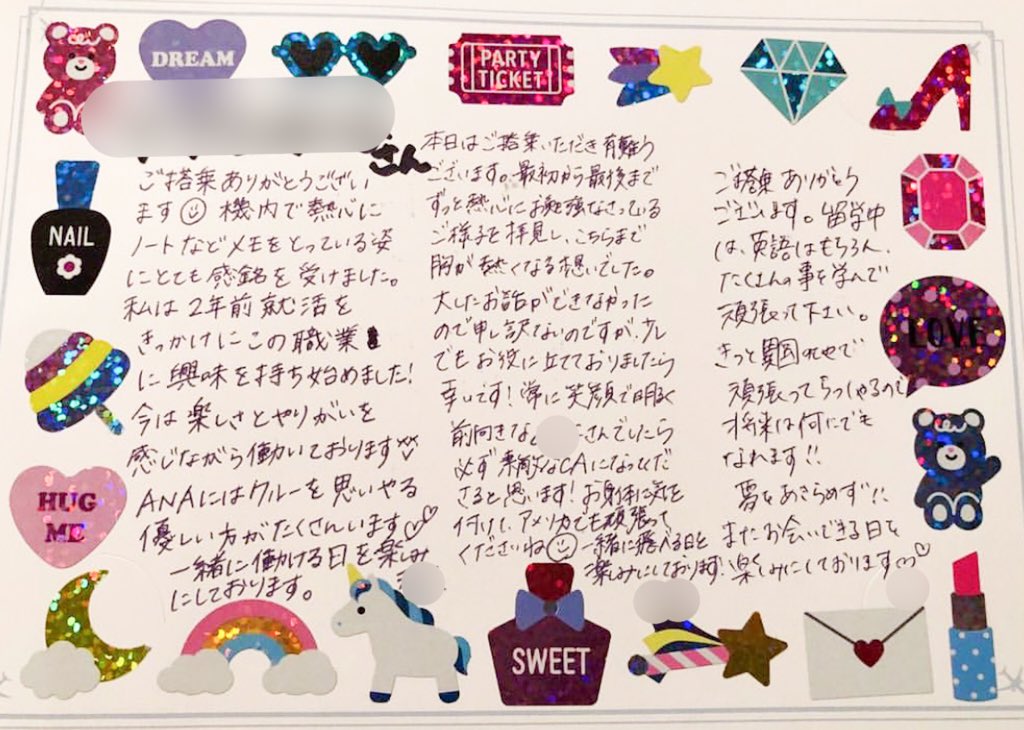 DREAM
PARTY
TICKET
さん
ご搭乗ありがとうござい
ます 機内で熱心に
ノートなどメモをとっている姿
にとても感銘を受けました。
私は2年前就活を
きっかけにこの職業
に興味を持ち始めました!
今は楽しさとやりがいを
感じながら働いております
ANAにはクルーを思いやる
優しい方がたくさんいます♡♡
一緒に働ける日を楽しみ
にしております。
本日はご搭乗いただき有難う
ございます。最初から最後まで
ずっと熱心にお勉強なさっている
ご様子を拝見し、こちらまで
胸が熱くなる想いでした。
大したお話ができなかった
ので申し訳ないのですが、少し
でもお役に立てておりましたら
幸いです!常に笑顔で明るく
前向きな さんでしたら
必ず素敵なCAになってくだ
さると思います!お身体に気を
付けて、アメリカでも頑張って
くださいね 一緒に飛べる日を
楽しみにしております!
ご搭乗ありがとう
ございます。留学中
は、英語はもちろん、
たくさんの事を学んで
頑張って下さい。
きっと異国の地で
頑張ってらっしゃるので
将来は何にでも
なれます!!
夢をあきらめずに
またお会いできる日を
楽しみにしております♡
NAIL
LOVE
HUG
ME
SWEET